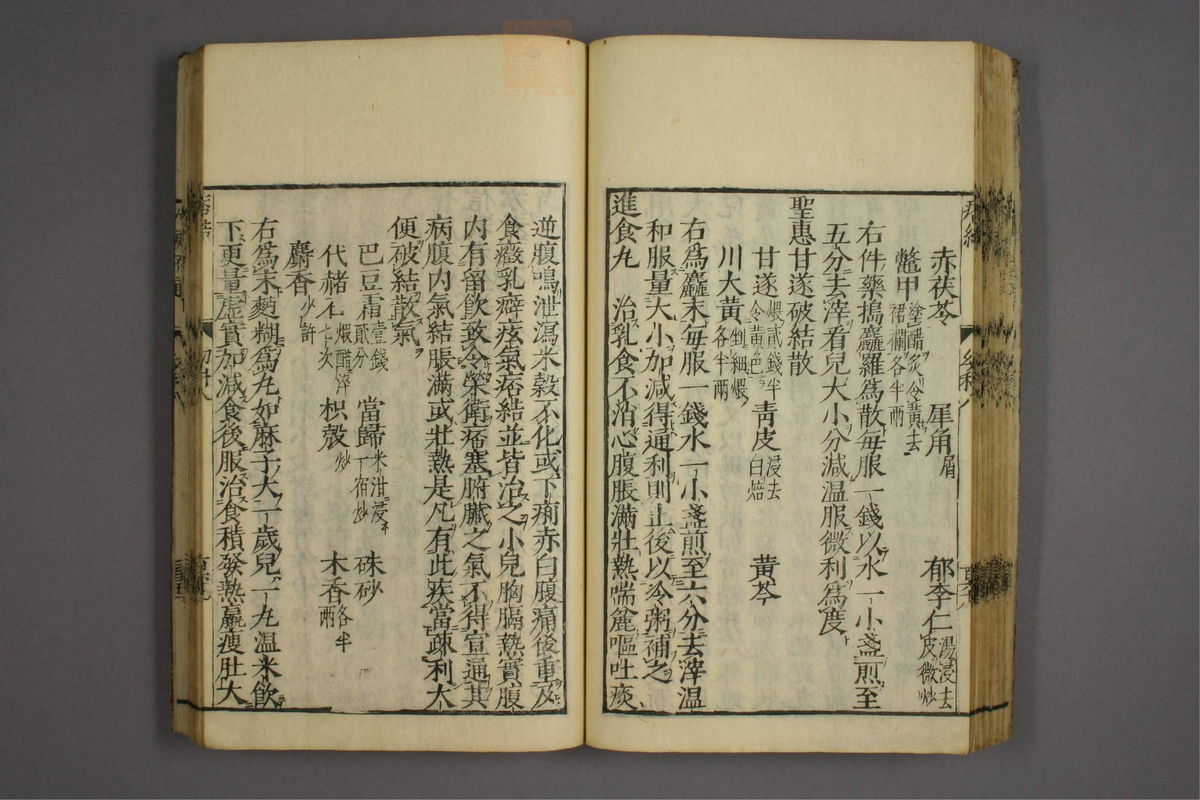 赤茯苓 犀角屑 郁李仁湯浸去皮微炒
鼈甲塗醋炙令黄去裙襴各半兩
右件藥搗麤羅爲散每服一錢以水一小盞煎至
五分去滓看兒大小分減温服微利爲度
聖惠甘遂破結散
甘遂煨貳錢半令黄色 青皮浸去白焙 黄芩
川大黄剉細煨各半兩
右爲麤末每服一錢水一小盞煎至六分去滓温
和服量大小加減得通利則止後以冷粥補之
進食丸 治乳食不消心腹脹滿壯熱喘麄嘔吐痰
逆腹鳴泄瀉米穀不化或下痢赤白腹痛後重及
食癥乳癖痃氣痞結並皆治之小兒胸膈熱實腹
内有留飲致令榮衛痞塞腑臓之氣不得宣通其
病腹内氣結脹滿或壯熱是凡有此疾當疎利大
便破結散氣
巴豆霜壹錢貳分 當歸米泔浸一宿炒 硃砂
代赭石煆醋淬七次 枳殻炒 木香各半兩
麝香少許
右爲末麪糊爲丸如麻子大一歲兒一丸温米飲
下更量虚實加減食後服治食積發熱羸痩肚大